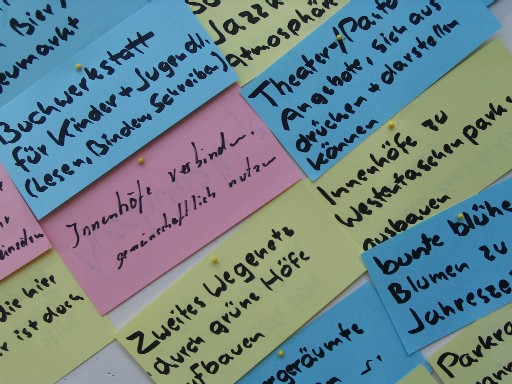 Bier
Buchwerkstatt
für Kinder + Jugendl.
(Lesen, Binden, Schreiben)
Jazz
Atmosphär
Theater-/
Angebote, sich aus
drücken + darstellen
können
Innenhöfe verbinden,
gemeinschaftlich nutzen
Innenhöfe zu
Westentaschenparks
ausbauen
bunte blühe
Blumen zu
Jahresze
Zweites Wegenetz
durch grüne Höfe
ufbauen
die hier
r ist doch
ergeräumte
Parkra